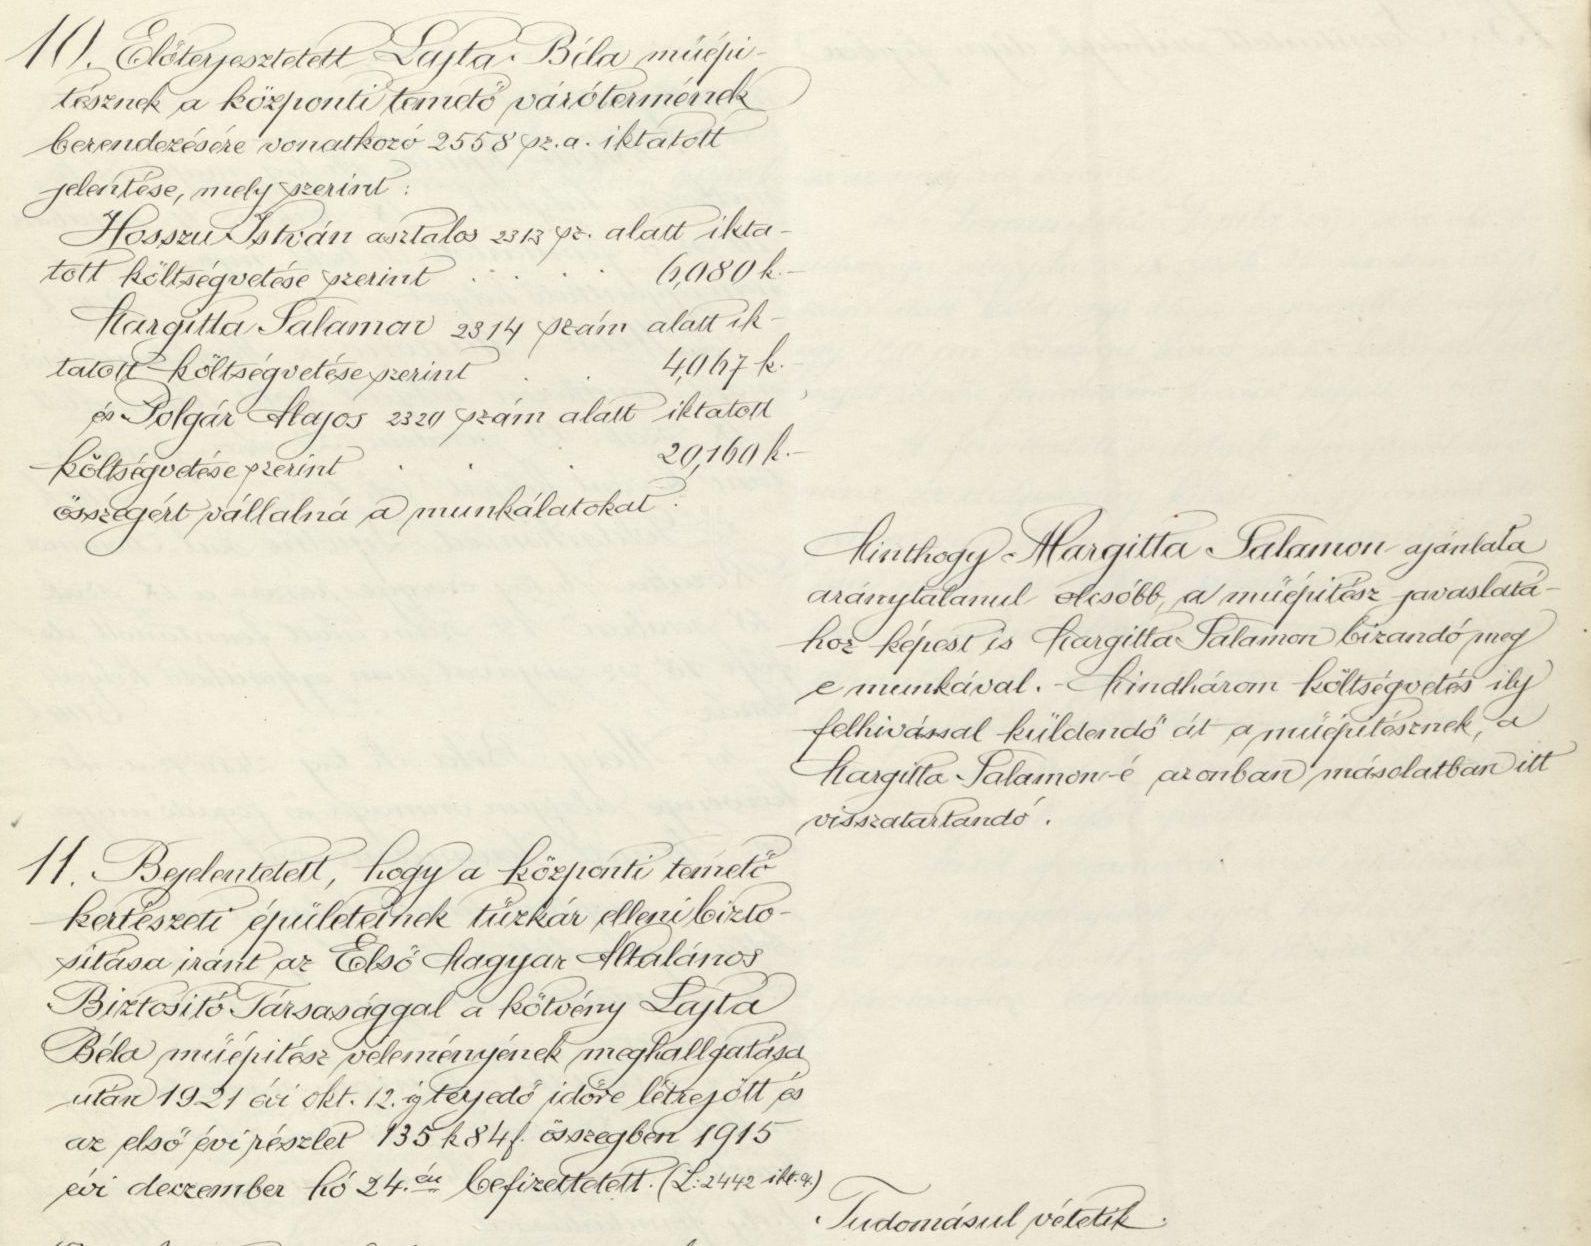 10. Előterjesztetett Lajta Béla műépi-
tésznek a központi temető várótermének
berendezésére vonatkozó 2558 sz. a. iktatott
jelentése, mely szerint:
Hosszu István asztalos 2313 sz. alatt ikta-
tott költségvetése szerint . . . . 6,080 k.-
Margitta Salamon 2314 szám alatt ik-
tatott költségvetése szerint . . 4,067 k.-
és Polgár Alajos 2320 szám alatt iktatott
költségvetése szerint . . . 20,160 k.-
összegért vállalná a munkálatokat.
Minthogy Margitta Salamon ajánlata
aránytalanul olcsóbb, a műépitész javaslatá-
hoz képest is Margitta Salamon bizandó meg
e munkával. - Mindhárom költségvetés ily
felhivással küldendő át a műépitésznek, a
Margitta Salamon-é azonban másolatban itt
visszatartandó.
11. Bejelentetett, hogy a központi temető
kertészeti épületeinek tűzkár elleni bizto-
sitása iránt az Első Magyar Általános
Biztositó Társasággal a kötvény Lajta
Béla műépitész véleményének meghallgatása
után 1921 évi okt. 12. ig terjedő időre létrejött és
az első évi részlet 135 k 84 f. összegben 1915
évi deczember hó 24.én befizettetett. (L: 2442 ikt. sz.)
Tudomásul vétetik.